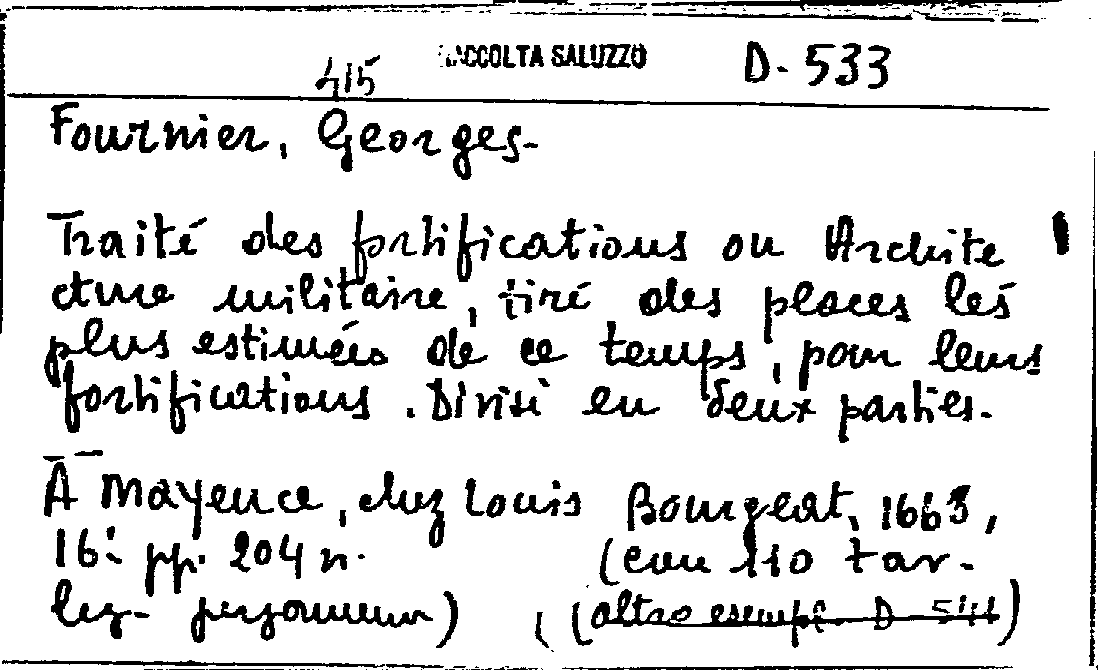 RACCOLTA SALUZZO D-533
415
Fournier, Georges-
Traité des fortifications ou Archite
cture militaire, tiré des places les
plus estimées de ce temps, pour leurs
fortifications. Divisé en deux parties.
A Mayence, chez Louis Bourgeat, 1663,
16º pp. 204 n. (con 110 tav.
leg. pergamena) ( (altro esempl. D 541)